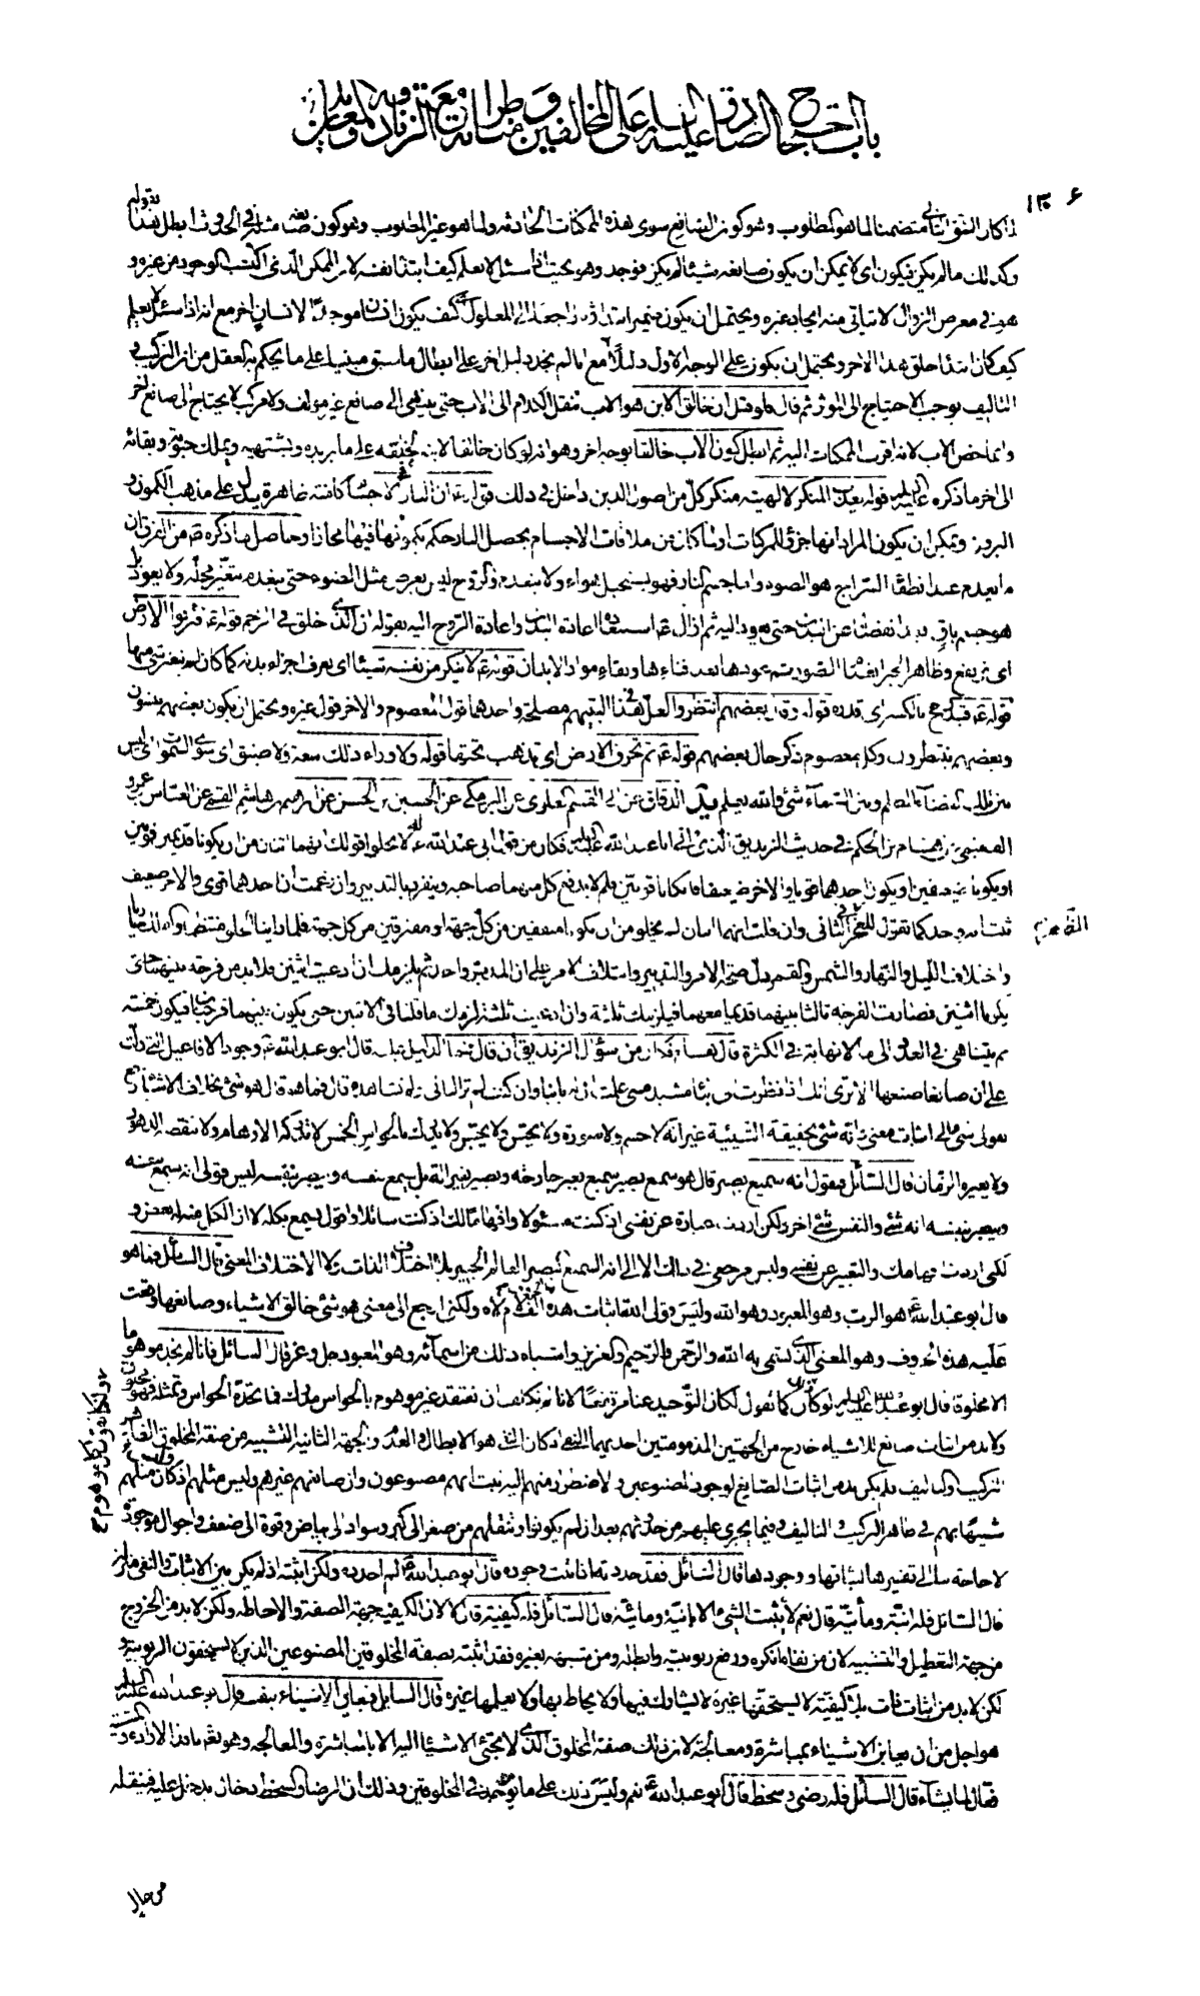 باب احتجاج الصادق عليه السلام على المخالفين ومناظراته مع الزنادقة والمعاندين
١٣٠٦
لما كان الشق الثاني متضمنا لما هو المطلوب وهو كون الصانع سوى هذه الممكنات الحادثة ولما هو غير المطلوب وهو كون صانعه مثله في الحدوث ابطل هذا بقوله
وكذلك ما لم يكن فيكون اي لا يمكن ان يكون صانعه شيئا لم يكن فوجد وهو بحيث اذا سئل لا يعلم كيف ابتدا نفسه لان الممكن الذي اكتسب الوجود من غيره و
هو في معرض الزوال لا يتاتى منه ايجاد غيره ويحتمل ان يكون ضمير ابتداؤه راجعا الى المعلول كيف يكون انسان موجدا لانسان اخر مع انه اذا سئل لا يعلم
كيف كان ابتدا خلق هذا الاخر ويحتمل ان يكون على الوجه الاول دليلا مع ما لم يجد دليل اخر على ابطال ما سبق مبنيا على ما يحكم به العقل من ان التركيب و
التاليف يوجب الاحتياج الى المؤثر ثم قال فلو قيل ان خالق الابن هو الاب ننقل الكلام الى الاب حتى ينتهي الى صانع غير مؤلف ولا مركب لا يحتاج الى صانع اخر
وانما خص الاب لانه اقرب الممكنات اليه ثم ابطل كون الاب خالقا بوجه اخر وهو انه لو كان خالقا لابنه لخلقه على ما يريده ويشتهيه ويملك حيوته وبقائه
الى اخر ما ذكره عليه السلام قوله يعبدون المنكر لالهيته منكر كل من اصول الدين داخل في ذلك قوله ان النار في الاجسام كامنة ظاهره يدل على مذهب الكمون و
البروز ويمكن ان يكون المراد انها جزء للمركبات او لما كان من ملاقات الاجسام يحصل النار حكم بكمونها فيها مجازا وحاصل ما ذكره من الفرق ان
ما يعدم عند انطفاء السراج هو الضوء واما جسم النار فهو يستحيل هواء ولا ينعدم والروح ليس بعرض مثل الضوء حتى ينعدم بتغير محله ولا يعود بل
هو جسم باق بعد انفصاله عن البدن حتى يعود اليه ثم ازال استبعاده اعادة البدن واعادة الروح اليه بقوله ان الذي خلق في الرحم قوله فتربو الارض
اي تربو وترتفع وظاهر الخبر انعدام الصور ثم عودها بعد فناءها وبقاء مواد الابدان قوله لا ينكر من نفسه شيئا اي يعرف اجزاء بدنه كما كان لم يتغير شيء منها
قوله قبلة بالكسر اي قدره قوله وقال بعضهم انتظروا لعل هذا النبي في مصلحة واحدهما قول المعصوم والاخر قول غيره ويحتمل ان يكون بعضهم ييئسون
وبعضهم ينتظرون وكل بمعصوم ذكر حال بعضهم قوله ثم تخرق الارض اي تذهب تحتها قوله ولا وراء ذلك سعة ولا ضيق اي سوى السموات اي ليس
بين السماء شيء والله يعلم يد الدقاق عن ابي القسم العلوي عن البرمكي عن الحسين بن الحسن عن ابرهيم بن هاشم القمي عن العباس بن عمرو
الفقيمي عن هشام بن الحكم في حديث الزنديق الذي اتى ابا عبد الله عليه السلام فكان من قول ابي عبد الله له لا يخلو قولك انهما اثنان من ان يكونا قديمين قويين
او يكونا ضعيفين او يكون احدهما قويا والاخر ضعيفا فان كانا قويين فلم لا يدفع كل منهما صاحبه وينفرد بالتدبير وان زعمت ان احدهما قوي والاخر ضعيف
ثبت انه واحد كما نقول للعجز الظاهر في الثاني وان قلت انهما اثنان لم يخلو من ان يكونا متفقين من كل جهة او مفترقين من كل جهة فلما راينا الخلق منتظما والفلك جاريا
واختلاف الليل والنهار والشمس والقمر دل صحة الامر والتدبير وائتلاف الامر على ان المدبر واحد ثم يلزمك ان ادعيت اثنين فلا بد من فرجة بينهما حتى
يكونا اثنين فصارت الفرجة ثالثا بينهما قديما معهما فيلزمك ثلثة وان ادعيت ثلثة لزمك ما قلنا في الاثنين حتى يكون بينهما فرجتان فيكون خمسة
ثم يتناهى في العدد الى ما لا نهاية في الكثرة قال هشام فكان من سؤال الزنديق ان قال فما الدليل عليه قال ابو عبد الله وجود الافاعيل التي دلت
على ان صانعا صنعها الا ترى انك اذا نظرت الى بناء مشيد مبني علمت ان له بانيا وان كنت لم تر الباني ولم تشاهده قال فما هو قال هو شيء بخلاف الاشياء ارجع
بقولي شيء الى اثبات معنى وانه شيء بحقيقة الشيئية غير انه لا جسم ولا صورة ولا يحس ولا يجس ولا يدرك بالحواس الخمس لا تدركه الاوهام ولا تنقصه الدهور
ولا يغيره الزمان قال السائل فتقول انه سميع بصير قال هو سميع بصير سميع بغير جارحة وبصير بغير الة بل يسمع بنفسه ويبصر بنفسه ليس قولي انه يسمع بنفسه
ويبصر بنفسه انه شيء والنفس شيء اخر ولكن اردت عبارة عن نفسي اذ كنت مسئولا وافهاما لك اذ كنت سائلا واقول يسمع بكله لا ان الكل منه له بعض و
لكني اردت افهامك والتعبير عن نفسي وليس مرجعي في ذلك الا الى انه السميع البصير العالم الخبير بلا اختلاف الذات ولا اختلاف المعنى قال السائل فما هو
قال ابو عبد الله هو الرب وهو المعبود وهو الله وليس قولي الله اثبات هذه الحروف الف لام هاء ولكني ارجع الى معنى هو شيء خالق الاشياء وصانعها وقعت
عليه هذه الحروف وهو المعنى الذي يسمى به الله والرحمن والرحيم والعزيز واشباه ذلك من اسمائه وهو المعبود جل وعز قال السائل فانا لم نجد موهوما
الا مخلوقا قال ابو عبد الله عليه السلام لو كان ذلك كما تقول لكان التوحيد عنا مرتفعا لانا لم نكلف ان نعتقد غير موهوم بالحواس مدرك فما تجده الحواس وتمثله فهو مخلوق
ولا بد من اثبات صانع للاشياء خارج من الجهتين المذمومتين احديهما النفي اذ كان النفي هو الابطال والعدم والجهة الثانية التشبيه من صفة المخلوق الظاهر
التركيب والتاليف فلم يكن بد من اثبات الصانع لوجود المصنوعين والاضطرار منهم اليه ثبت انهم مصنوعون وان صانعهم غيرهم وليس مثلهم اذ كان مثلهم
شبيها بهم في ظاهر التركيب والتاليف وفيما يجري عليهم من حدوثهم بعد ان لم يكونوا وتنقلهم من صغر الى كبر وسواد الى بياض وقوة الى ضعف واحوال موجودة
لا حاجة بنا الى تفسيرها لثباتها ووجودها قال السائل فقد حددته اذ اثبت وجوده قال ابو عبد الله لم احدده ولكن اثبته اذ لم يكن بين الاثبات والنفي منزلة
قال السائل فله انية ومائية قال نعم لا يثبت الشيء الا بانية ومائية قال السائل فله كيفية قال لا لان الكيفية جهة الصفة والاحاطة ولكن لا بد من الخروج
من جهة التعطيل والتشبيه لان من نفاه انكره ورفع ربوبيته وابطله ومن شبهه بغيره فقد اثبته بصفة المخلوقين المصنوعين الذين لا يستحقون الربوبية و
لكن لا بد من اثبات ذات بلا كيفية لا يستحقها غيره ولا يشارك فيها ولا يحاط بها ولا يعلمها غيره قال السائل فيعاني الاشياء بنفسه قال ابو عبد الله عليه السلام
هو اجل من ان يعاني الاشياء بمباشرة ومعالجة لان ذلك صفة المخلوق الذي لا يجئ الاشياء اليه الا بالمباشرة والمعالجة وهو تعالى نافذ الارادة والمشية
فعال لما يشاء قال السائل فله رضى وسخط قال ابو عبد الله نعم وليس ذلك على ما يوجد في المخلوقين وذلك ان الرضا والسخط دخال يدخل عليه فينقله
من حال